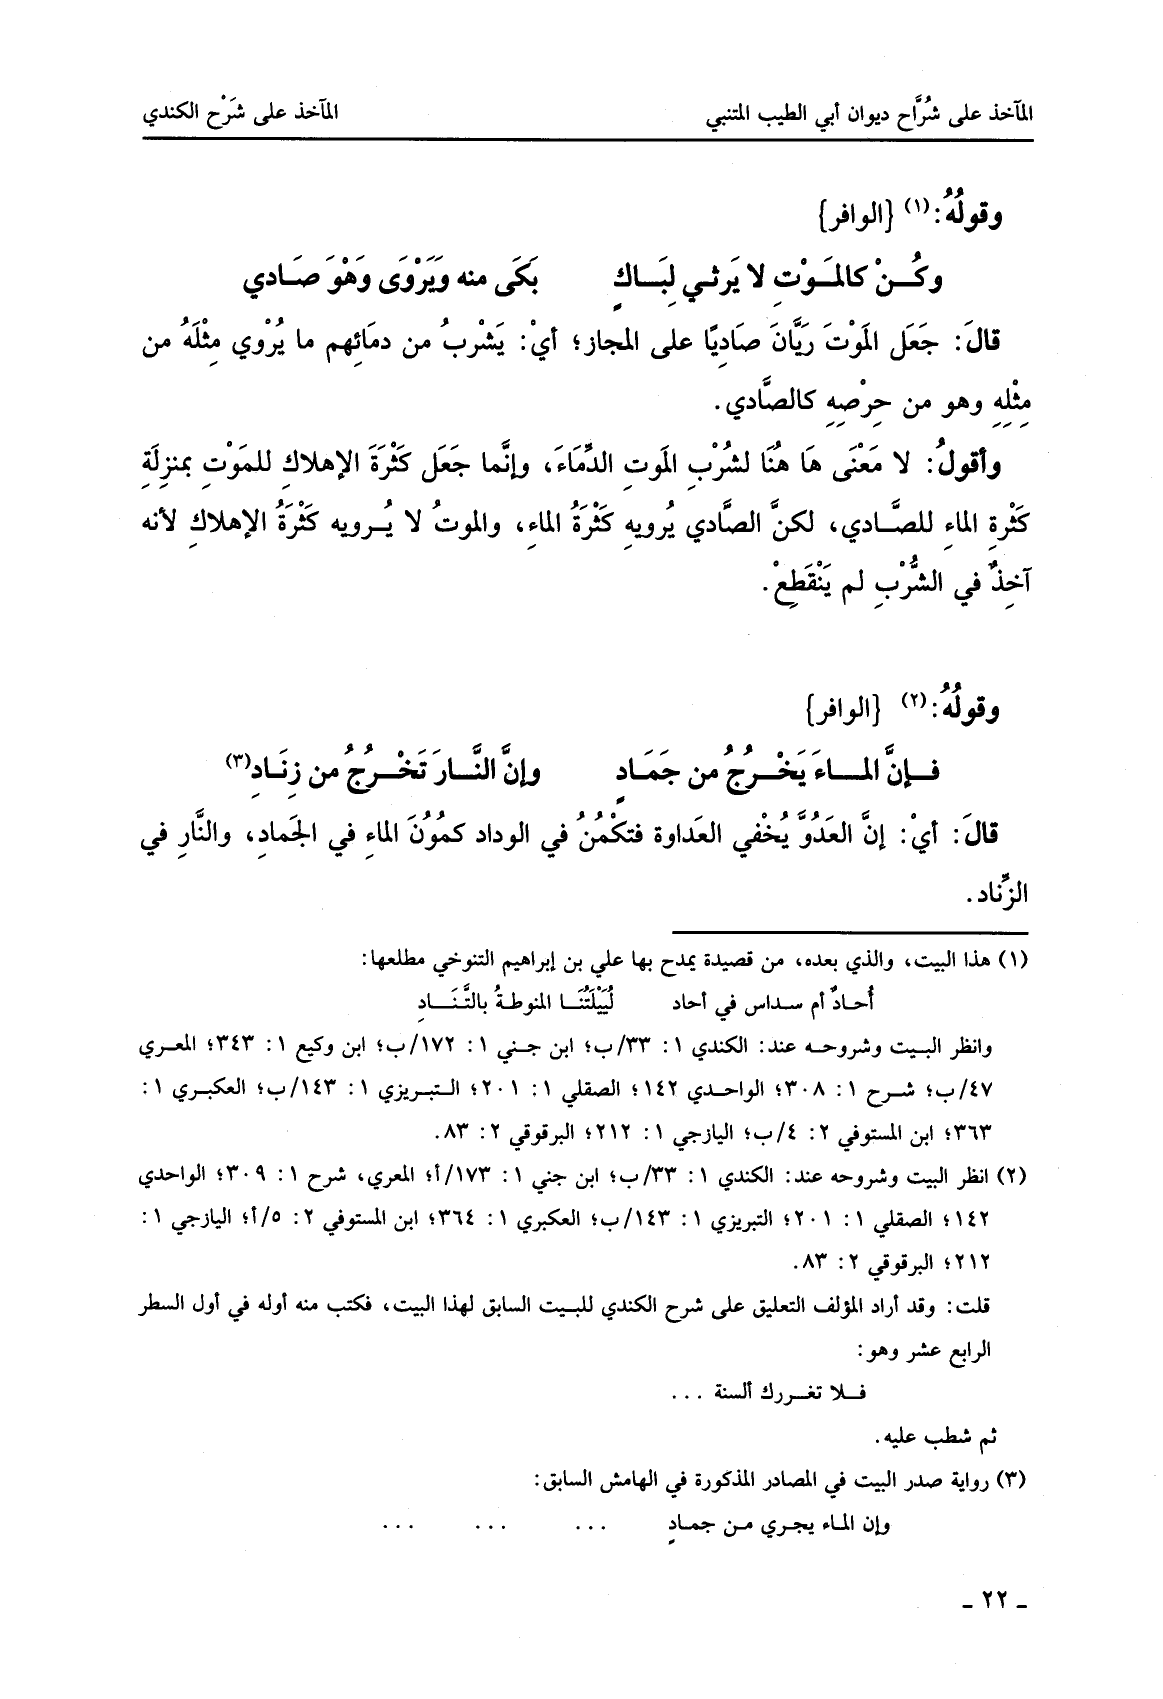 المآخذ على شُرَّاح ديوان أبي الطيب المتنبي المآخذ على شَرْح الكندي
وقولُهُ:(١) {الوافر}
وكُنْ كالمَوْتِ لا يَرثي لِبَاكٍ بَكَى منه وَيَرْوَى وَهْوَ صَادي
قالَ: جَعَل المَوْتَ رَيَّانَ صَاديًا على المجاز؛ أيْ: يَشْربُ من دمَائِهم ما يُرْوي مِثْلَهُ من
مِثْلِهِ وهو من حِرْصِهِ كالصَّادي.
وأقولُ: لا مَعْنَى هَا هُنَا لشُرْبِ المَوتِ الدِّمَاءَ، وإنَّما جَعَل كَثْرَةَ الإهلاكِ للمَوْتِ بمنزلَةِ
كَثْرةِ الماءِ للصَّادي، لكنَّ الصَّادي يُرويهِ كَثْرَةُ الماءِ، والموتُ لا يُرويه كَثْرَةُ الإهلاكِ لأنه
آخِذٌ في الشُّرْبِ لم يَنْقَطِعْ.
وقولُهُ:(٢) {الوافر}
فإنَّ الماءَ يَخْرُجُ من جَمَادٍ وإنَّ النَّارَ تَخْرُجُ من زِنَادِ(٣)
قالَ: أيْ: إنَّ العَدُوَّ يُخْفي العَداوة فتكْمُنُ في الوداد كمُوُنَ الماءِ في الجَمادِ، والنَّارِ في
الزِّناد.
(١) هذا البيت، والذي بعده، من قصيدة يمدح بها علي بن إبراهيم التنوخي مطلعها:
أُحادٌ أم سداس في أحاد لُيَيْلَتُنَا المنوطةُ بالتَّنَادِ
وانظر البيت وشروحه عند: الكندي ١: ٣٣/ب؛ ابن جني ١: ١٧٢/ب؛ ابن وكيع ١: ٣٤٣؛ المعري
٤٧/ب؛ شرح ١: ٣٠٨؛ الواحدي ١٤٢؛ الصقلي ١: ٢٠١؛ التبريزي ١: ١٤٣/ب؛ العكبري ١:
٣٦٣؛ ابن المستوفي ٢: ٤/ب؛ اليازجي ١: ٢١٢؛ البرقوقي ٢: ٨٣.
(٢) انظر البيت وشروحه عند: الكندي ١: ٣٣/ب؛ ابن جني ١: ١٧٣/أ؛ المعري، شرح ١: ٣٠٩؛ الواحدي
١٤٢؛ الصقلي ١: ٢٠١؛ التبريزي ١: ١٤٣/ب؛ العكبري ١: ٣٦٤؛ ابن المستوفي ٢: ٥/أ؛ اليازجي ١:
٢١٢؛ البرقوقي ٢: ٨٣.
قلت: وقد أراد المؤلف التعليق على شرح الكندي للبيت السابق لهذا البيت، فكتب منه أوله في أول السطر
الرابع عشر وهو:
فلا تغررك ألسنة ...
ثم شطب عليه.
(٣) رواية صدر البيت في المصادر المذكورة في الهامش السابق:
وإن الماء يجري من جمادٍ ... ... ...
ـ ٢٢ ـ